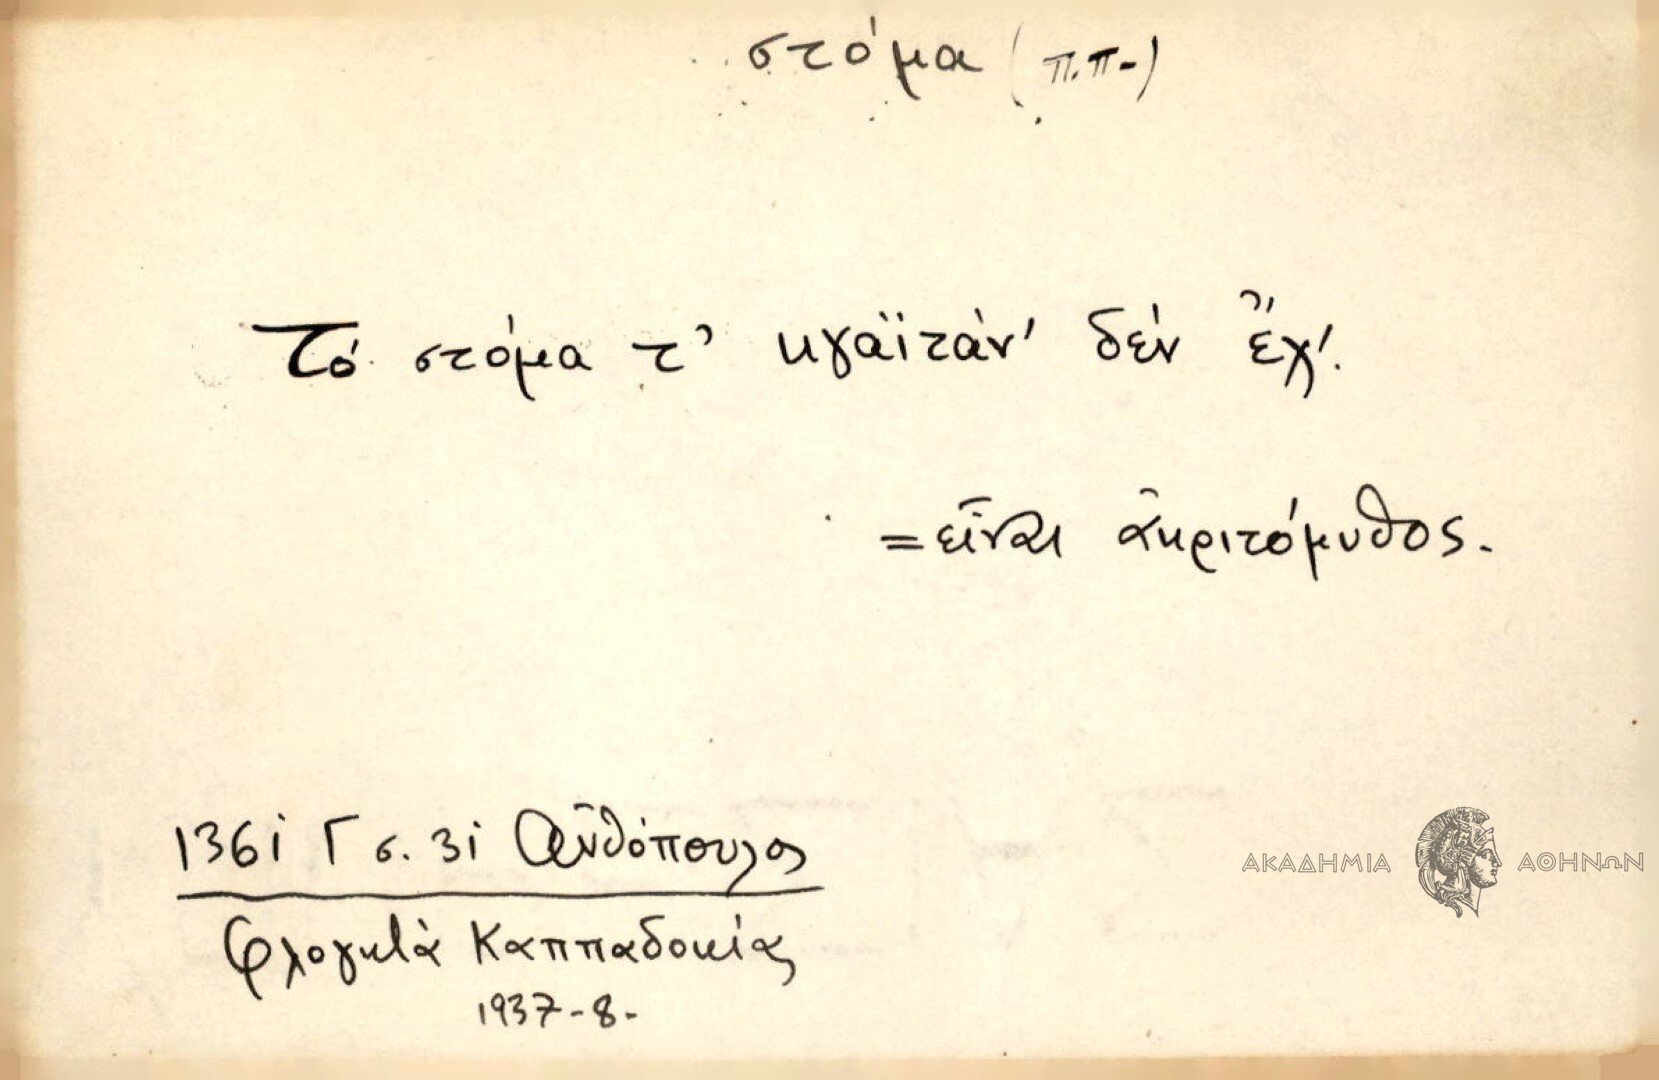 στόμα (π.π-)
Τό στόμα τ' κγαϊτάν' δέν ἔχ'.
=εἶναι ἀκριτόμυθος.
1361 Γ σ. 31 Ἀνθόπουλος
Φλογητὰ Καππαδοκίας
1937-8-
ΑΚΑΔΗΜΙΑ ΑΘΗΝΩΝ